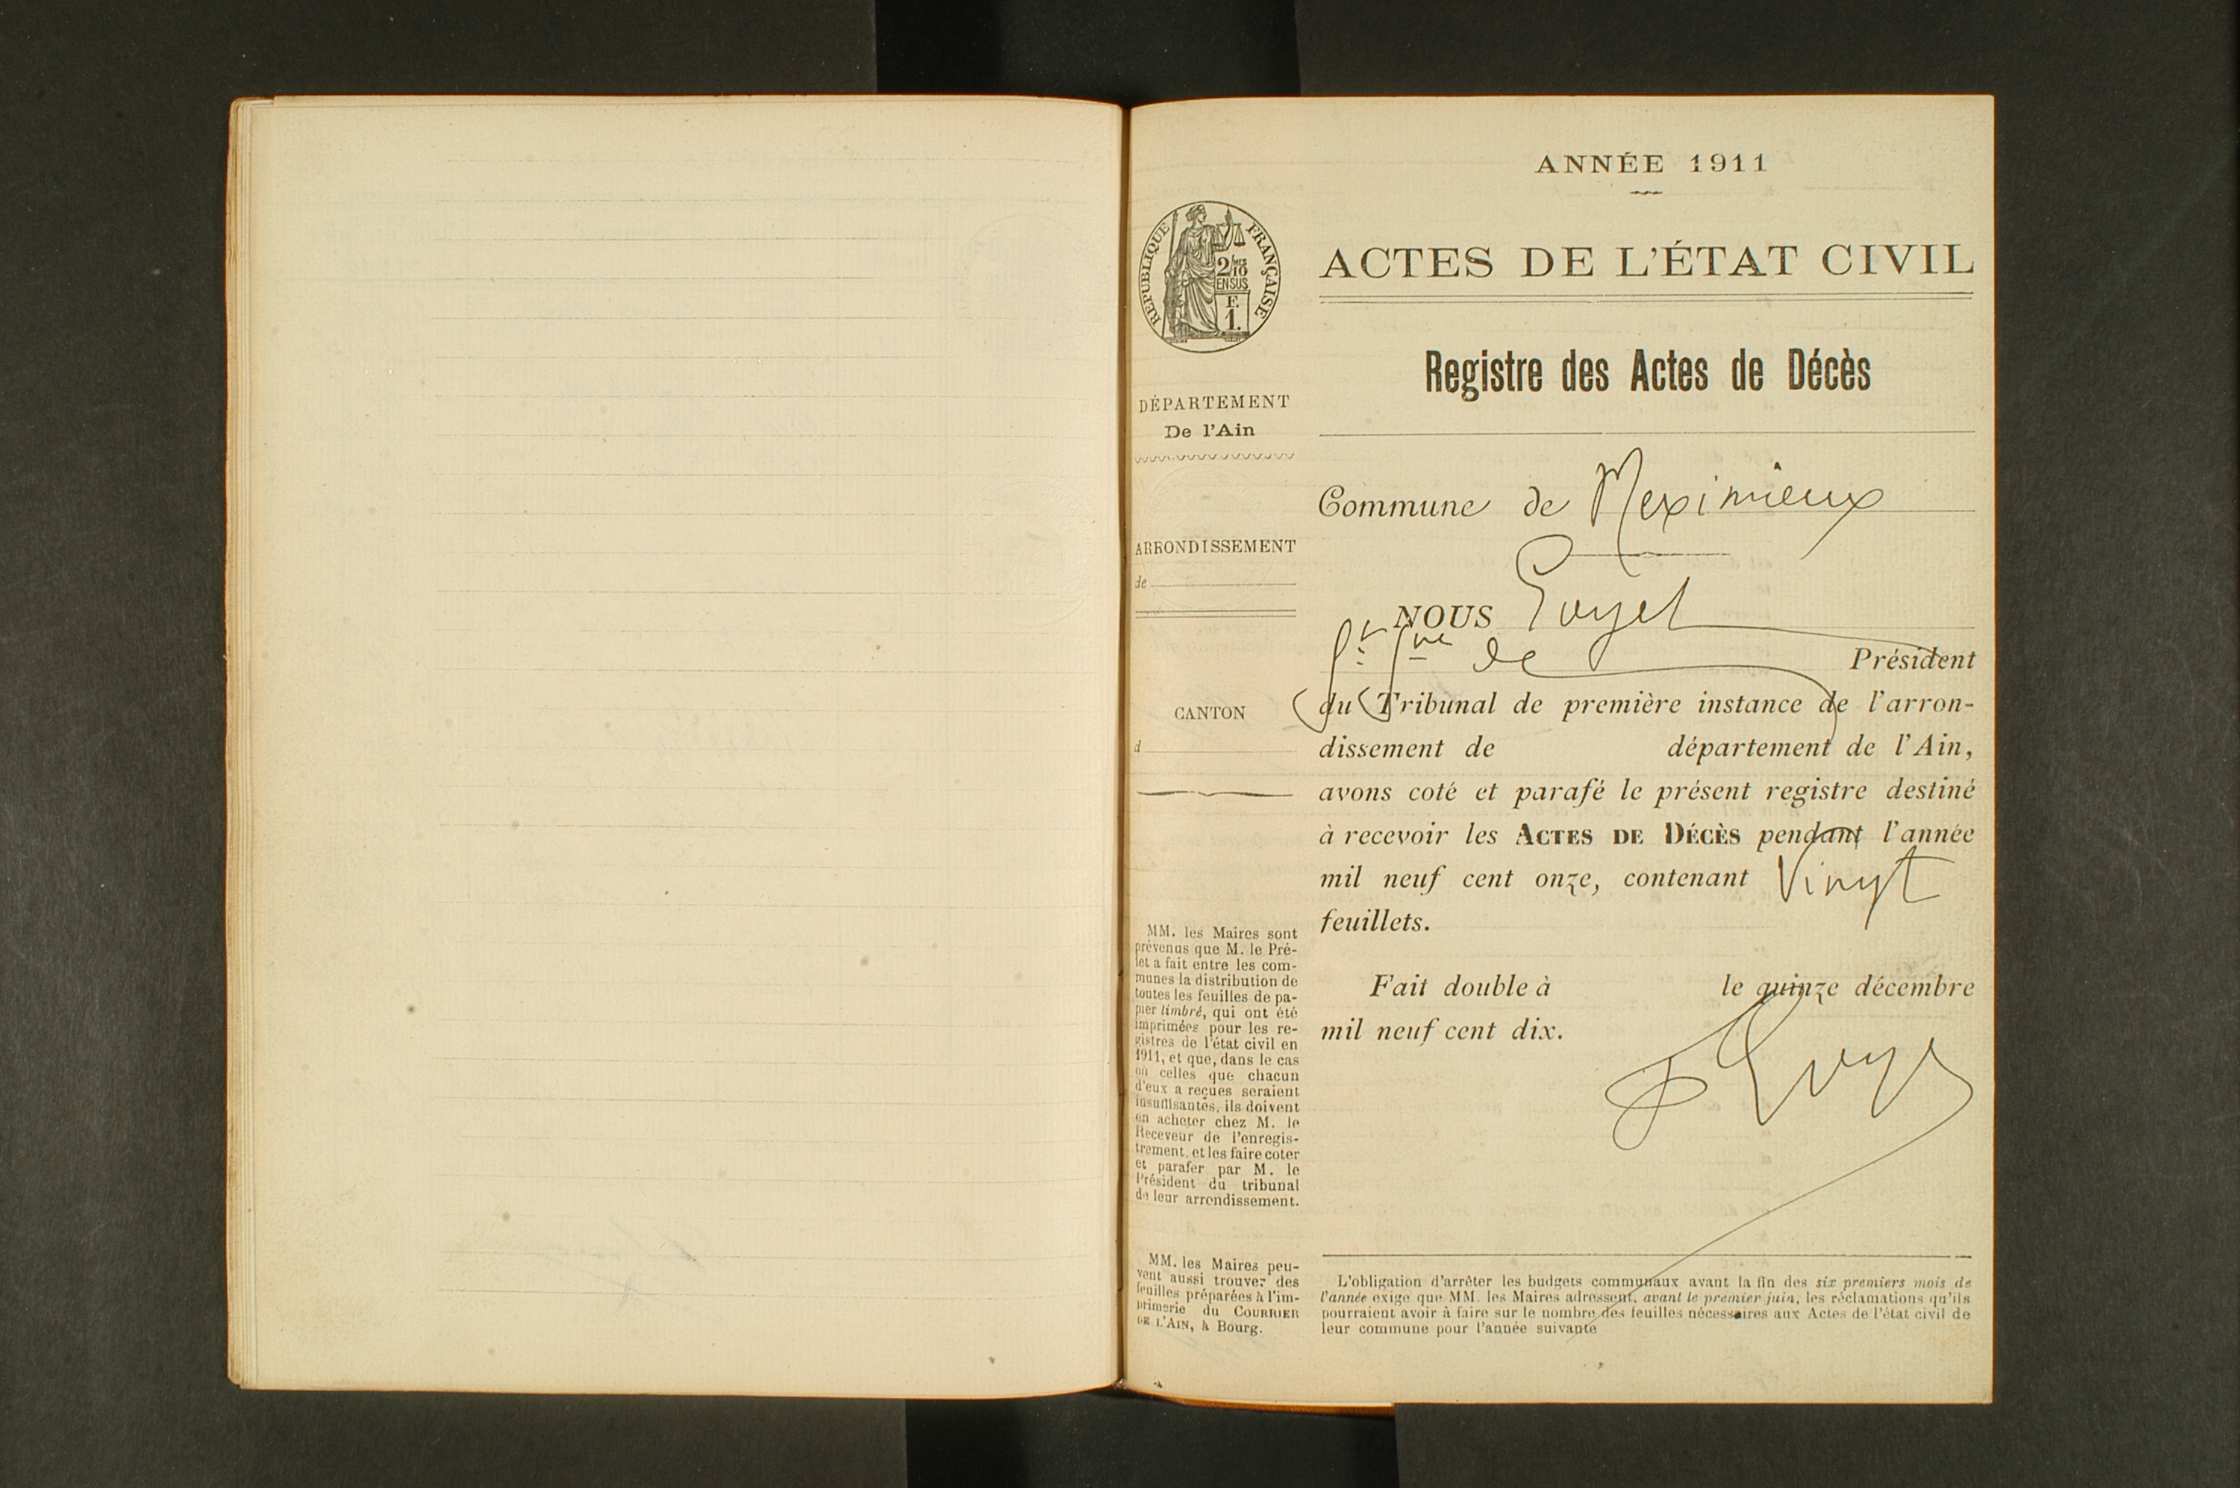 ANNÉE 1911
RÉPUBLIQUE FRANÇAISE
2/10
EN SUS
F.
1.
ACTES DE L'ÉTAT CIVIL
Registre des Actes de Décès
DÉPARTEMENT
De l'Ain
ARRONDISSEMENT
de
CANTON
d
MM. les Maires sont
prévenus que M. le Pré-
fet a fait entre les com-
munes la distribution de
toutes les feuilles de pa-
pier timbré, qui ont été
imprimées pour les re-
gistres de l'état civil en
1911, et que, dans le cas
où celles que chacun
d'eux a reçues seraient
insuffisantes, ils doivent
en acheter chez M. le
Receveur de l'enregis-
trement, et les faire coter
et parafer par M. le
Président du tribunal
de leur arrondissement.
MM. les Maires peu-
vent aussi trouver des
feuilles préparées à l'im-
primerie du COURRIER
DE L'AIN, à Bourg.
Commune de Meximieux
NOUS
de Président
du Tribunal de première instance de l'arron-
dissement de département de l'Ain,
avons coté et parafé le présent registre destiné
à recevoir les ACTES DE DÉCÈS pendant l'année
mil neuf cent onze, contenant Vingt
feuillets.
Fait double à le quinze décembre
mil neuf cent dix.
L'obligation d'arrêter les budgets communaux avant la fin des six premiers mois de
l'année exige que MM. les Maires adressent, avant le premier juin, les réclamations qu'ils
pourraient avoir à faire sur le nombre des feuilles nécessaires aux Actes de l'état civil de
leur commune pour l'année suivante